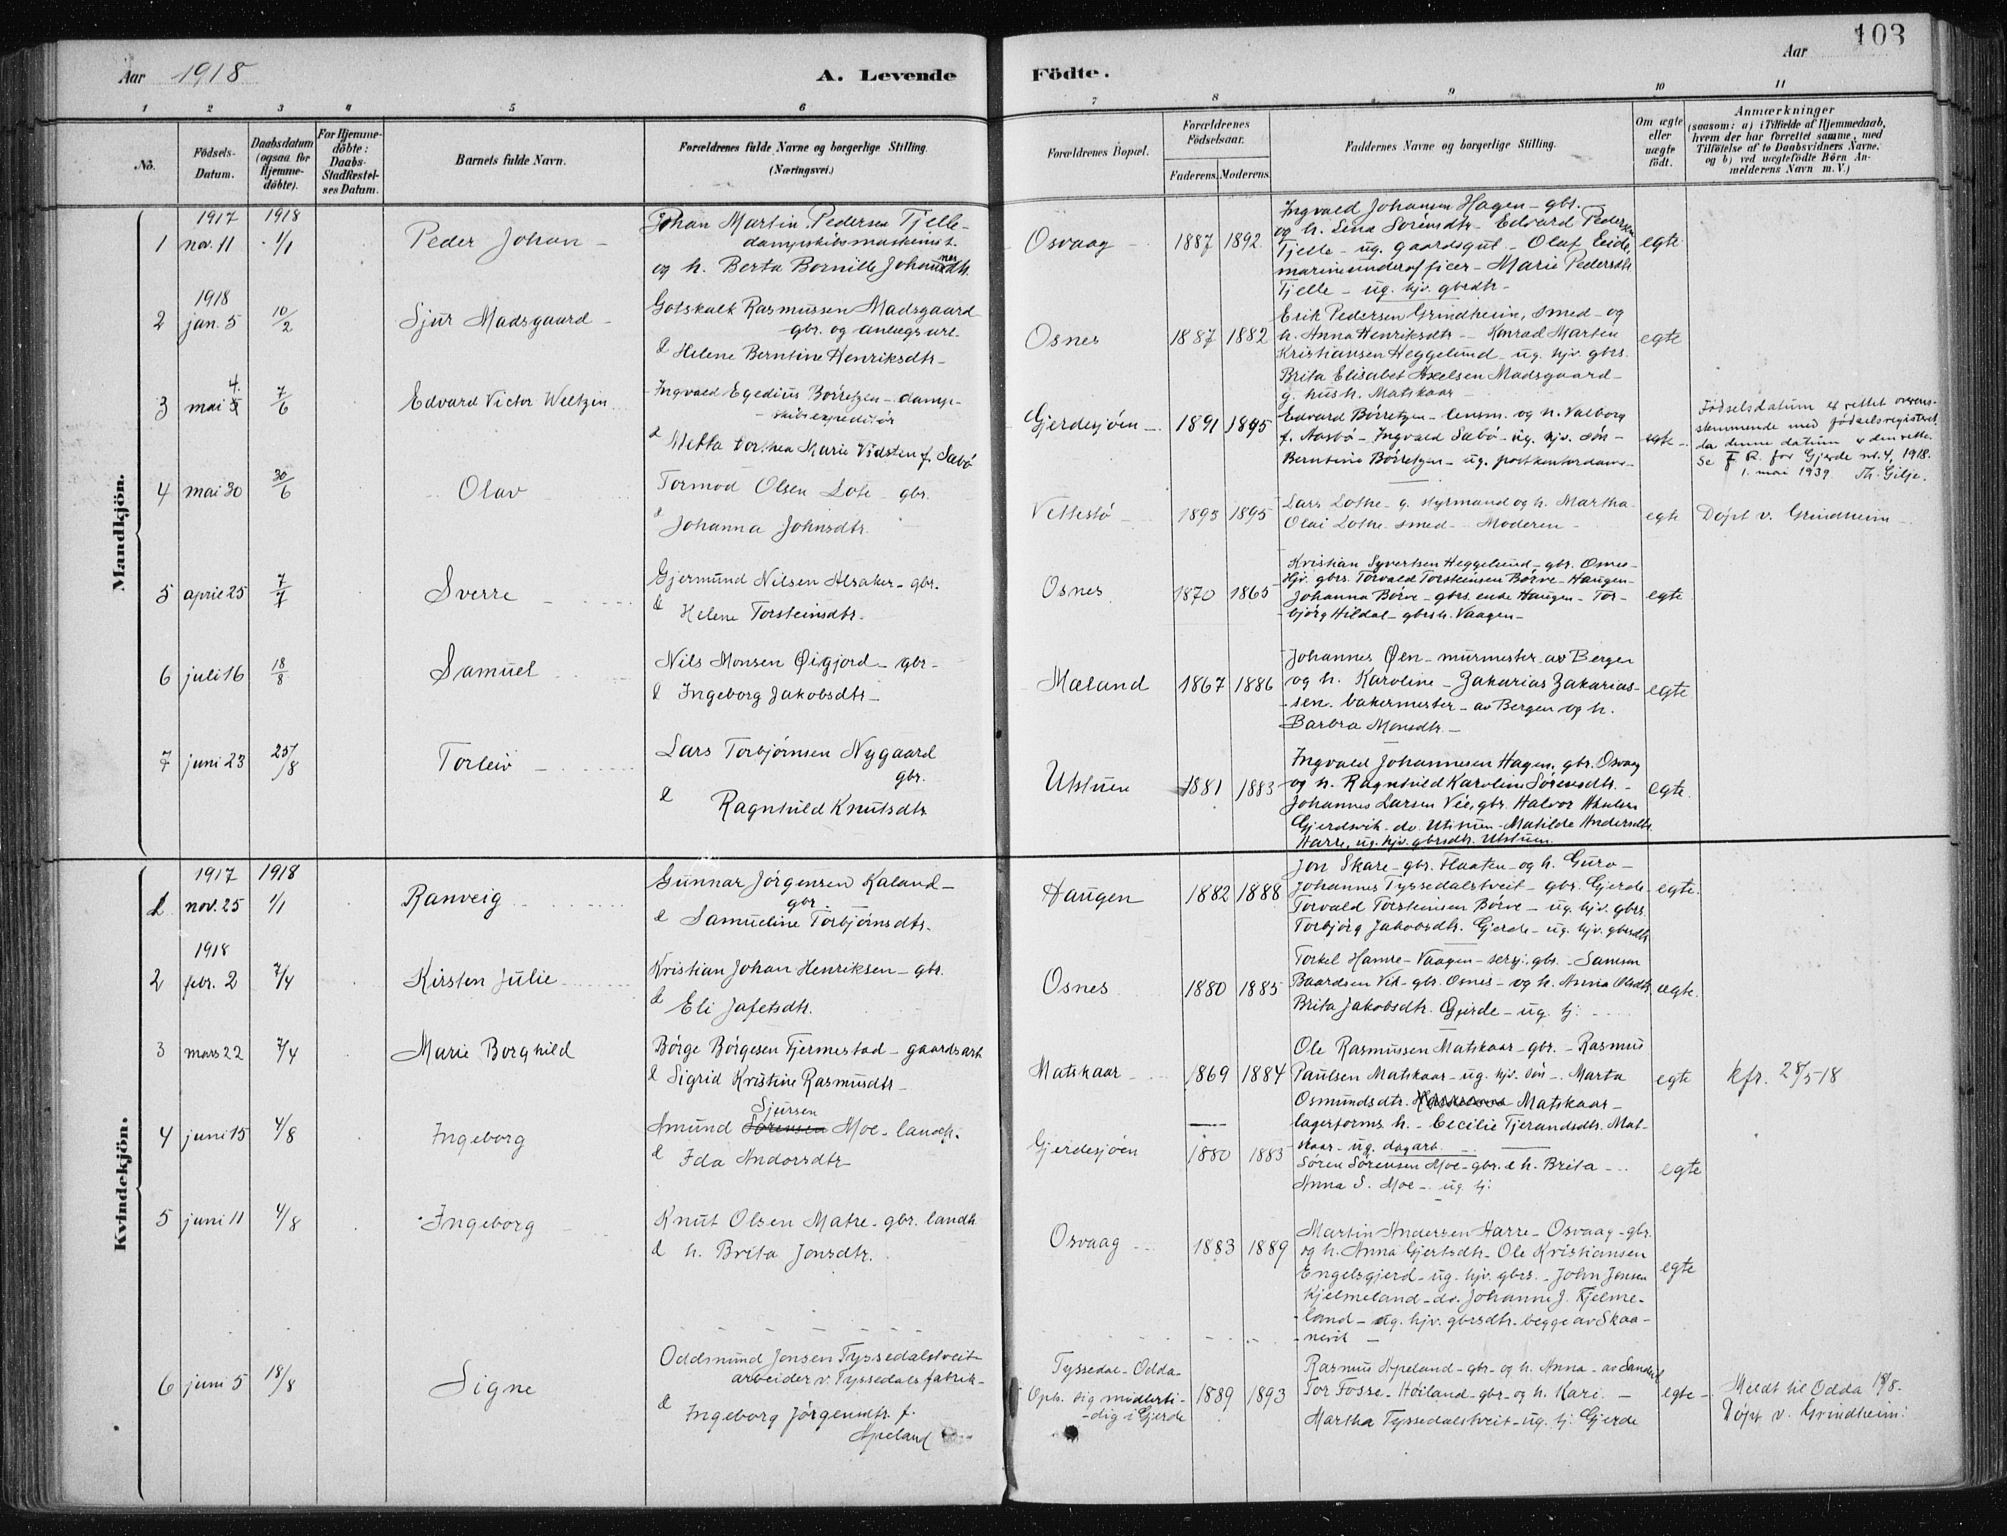 103
Aar 1918
A. Levende
Födte.
Aar
1 2 3 4 5 6 7 8 9 10 11
No.
Födsels-Datum.
Daabsdatum (ogsaa for Hjemme-döbte).
For Hjemme-döbte: Daabs-Stadfæstel-ses Datum.
Barnets fulde Navn.
Forældrenes fulde Navne og borgerlige Stilling. (Næringsvei.)
Forældrenes Bopæl.
Forældrenes Födselsaar.
Faderens. Moderens.
Faddernes Navne og borgerlige Stilling.
Om ægte eller uægte født.
Anmærkninger
(saasom: a) i Tilfælde af Hjemmedaab, hvem der har forrettet samme, med Tilföielse af to Daabsvidners Navne, og b) ved uægtefödte Börn An-melderens Navn m. V.)
Mandkjön.
1917 1918
1 nov. 11 1/1 Peder Johan
Johan Martin Pedersen Tjelle
dampskibsmaskinist.
og h. Berta Bornille Johannesdtr.
Osvaag 1887 1892
Ingvald Johansen Hagen - gbr.
og h. Lina Sörensdtr - Edvard Pedersen
Tjelle - ug. gaardsgut - Olaf Eide,
marineunderofficer - Marie Pedersdtr
Tjelle - ug. hjv. gbrsdtr -
egte
1918
2 jan. 5 10/2 Sjur Madsgaard
Gotskalk Rasmussen Madsgaard
gbr. og anlegsarb.
& Helene Berntine Henriksdtr -
Osnes 1887 1882
Erik Pedersen Grindheim, smed - og
h. Anna Henriksdtr - Konrad Martin
Kristiansen Heggelund - ug. hjv. gbrs.
Brita Elisabet Axelsen Madsgaard -
g. hush. Matskaar -
egte
3 mai 4. 7/6 Edvard Victor Weltzin
Ingvald Egedius Börretzen - damp-
- skibsexpeditör
& Metta Dorthea Marie Vidsten f. Sæbö
Gjerdesjöen - 1891 1895
Edvard Börretzen - lensm. og h. Valborg
f. Aasbö - Ingvald Sæbö - ug. hjv. sön -
Berntine Börretzen - ug. postkontordame -
egte -
Födselsdatum er rettet overens-
stemmende med födselsregistret,
da denne datum er den rette.
Se F. R. for Gjerde nr. 4, 1918.
1. mai 1939. Th. Gilje.
4 mai 30 30/6 Olav
Tormod Olsen Lote - gbr.
& Johanna Johnsdtr.
Vettestö 1893 1895
Lars Lothe - g. styrmand og h. Martha
Olai Lothe - smed - Moderen -
egte
Döpt v. Grindheim
5 april 25 7/7 Sverre
Gjermund Nilsen Alsaker - gbr.
& Helene Torsteinsdtr.
Osnes 1870 1865
Kristian Syvertsen Heggelund - gbr. Osnes -
Hjv. gbrs. Torvald Torsteinsen Börve - Haugen -
Johanna Börve - gbrs. enke Haugen - Tor-
- björg Hildal - gbrsh. Vaagen -
egte
6 juli 16 18/8 Samuel
Nils Monsen Øigjord - gbr -
& Ingeborg Jakobsdtr -
Mæland 1867 1886
Johannes Øen - murmester av Bergen
og h. Karoline - Zakarias Zakarias-
- sen. bakermester - av Bergen og h.
Barbra Monsdtr. -
egte
7 juni 23 25/8 Torleiv
Lars Torbjörnsen Nygaard
gbr.
& Ragnhild Knutsdtr
Utstuen 1881 1883
Ingvald Johannesen Hagen, gbr. Osvaag
og h. Ragnhild Karoline Sörensdtr. -
Johannes Larsen Vie, gbr. Halvor Akselsen
Gjerdsvik - do. Utstuen - Matilde Andersdtr.
Harre, ug. hjv. gbrsdtr. Utstuen.
egte.
Kvindekjön.
1917 1918
1 nov. 25 1/1 Ranveig
Gunnar Jörgensen Kaland -
gbr.
& Samueline Torbjörnsdtr.
Haugen 1882 1888
Jon Skare - gbr. Flaaten - og h. Guro -
Johannes Tyssedalstveit - gbr. Gjerde
Torvald Torsteinsen Börve - ug. hjv. gbrs.
Torbjörg Jakobsdtr. Gjerde - ug. hjv. gbrsdtr
egte.
1918
2 febr. 2 7/4 Kirsten Julie
Kristian Johan Henriksen - gbr.
& Eli Jafetsdtr.
Osnes 1880 1885
Torkel Hamre - Vaagen - gbr. - Samson
Baardsen Vik - gbr. Osnes - og h. Anna Olsdtr
Brita Jakobsdtr. Gjerde - ug. tj.
egte.
3 mars 22 7/4 Marie Borghild
Börge Börgesen Tjermestad - gaardsarb
& Sigrid Kristine Rasmusdtr -
Matskaar 1869 1884
Ole Rasmussen Matskaar - gbr. - Rasmus
Paulsen Matskaar - ug. hjv. sön - Marta
Osmundsdtr. Matskaar -
lagerforms h. - Cecilie Tjerandsdtr. Mat-
skaar - ug. dagarb.
egte
kfr. 28/5 18
4 juni 15 4/8 Ingeborg
Sjursen
Amund Sörensen Moe - landh.
& Ida Andorsdtr
Gjerdesjöen 1880 1883
Sören Sörensen Moe - gbr. & h. Brita -
Anna S. Moe - ug. tj.
egte
5 juni 11 4/8 Ingeborg
Knut Olsen Matre - gbr. landh
& h. Brita Jonsdtr.
Osvaag 1883 1889
Martin Andersen Harre - Osvaag - gbr.
og h. Anna Gjertsdtr - Ole Kristiansen
Engelsgjerd - ug. hjv. gbrs. - John Jonsen
Kjelmeland - do. Johanne J. Kjelme-
- land - ug. hjv. gbrsdtr. begge av Skaa-
- nevik -
egte
6 juni 5 18/8 Signe
Oddmund Jonsen Tyssedalstveit
arbeider v. Tyssedals fabrik -
& Ingeborg Jörgensdtr. f.
Apeland
Tyssedal - Odda
Oph. sig midlerti-
- dig i Gjerde
1889 1893
Rasmus Apeland - gbr - og h. Anna - av Sandeid
Tor Fosse - Höiland - gbr - og h. Kari. -
Martha Tyssedalstveit - ug. tj. Gjerde
egte -
Meldt til Odda 18/8.
Döpt v. Grindheim.